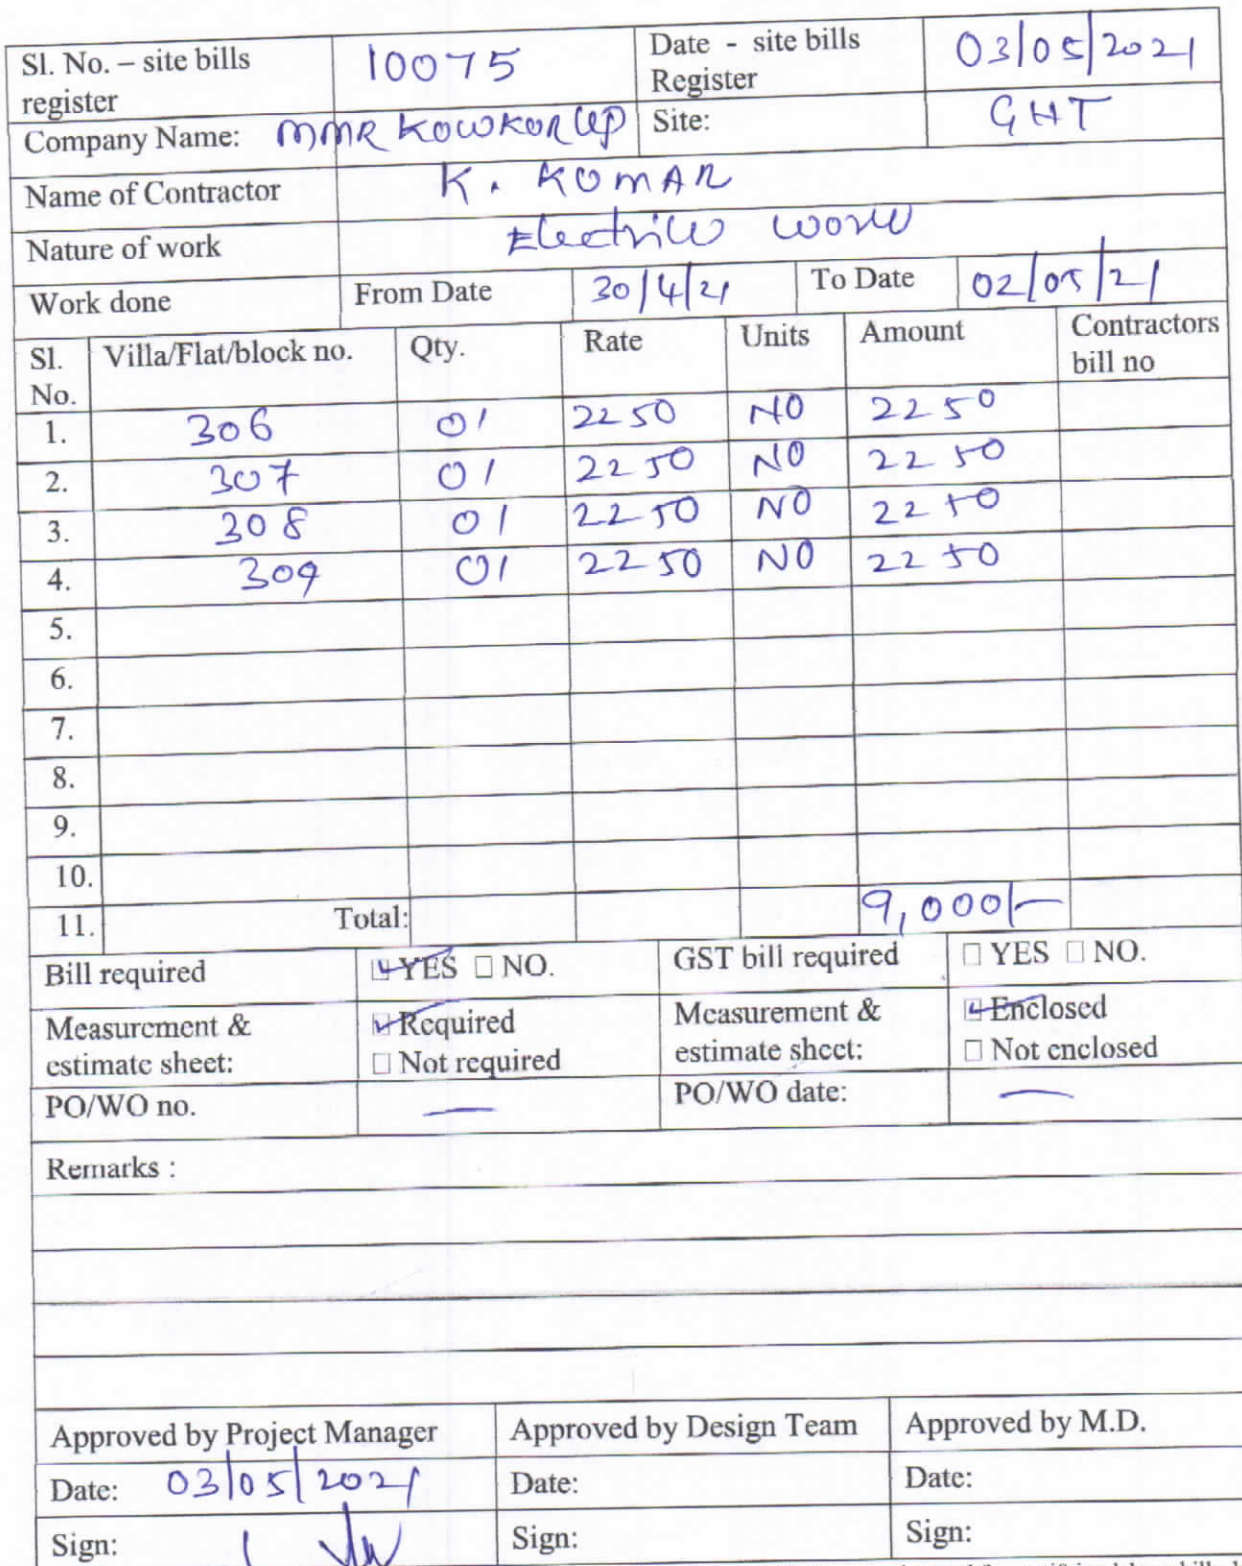 Sl. No. – site bills register 10075 Date - site bills Register 03/05/2021
Company Name: MMR KOWKUR LLP Site: GHT
Name of Contractor K. KUMAR
Nature of work Electrical work
Work done From Date 30/4/21 To Date 02/05/21
Sl. No. Villa/Flat/block no. Qty. Rate Units Amount Contractors bill no
1. 306 01 2250 NO 2250
2. 307 01 2250 NO 2250
3. 308 01 2250 NO 2250
4. 309 01 2250 NO 2250
5.
6.
7.
8.
9.
10.
11. Total: 9,000/-
Bill required ☑ YES ☐ NO. GST bill required ☐ YES ☐ NO.
Measurement & estimate sheet: ☑ Required ☐ Not required Measurement & estimate sheet: ☑ Enclosed ☐ Not enclosed
PO/WO no. — PO/WO date: —
Remarks :
Approved by Project Manager Approved by Design Team Approved by M.D.
Date: 03/05/2021 Date: Date:
Sign: Sign: Sign: